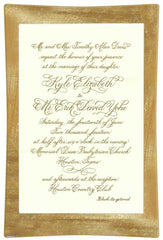 Mr. and Mrs. Timothy Alan Dean
request the honour of your presence
at the marriage of their daughter
Kyle Elizabeth
to
Mr. Erik David
Saturday, the fourteenth of June
Two thousand fourteen
at half after six o'clock in the evening
Memorial Drive Presbyterian Church
Houston, Texas
and afterwards at the reception
Houston Country Club
Black tie optional